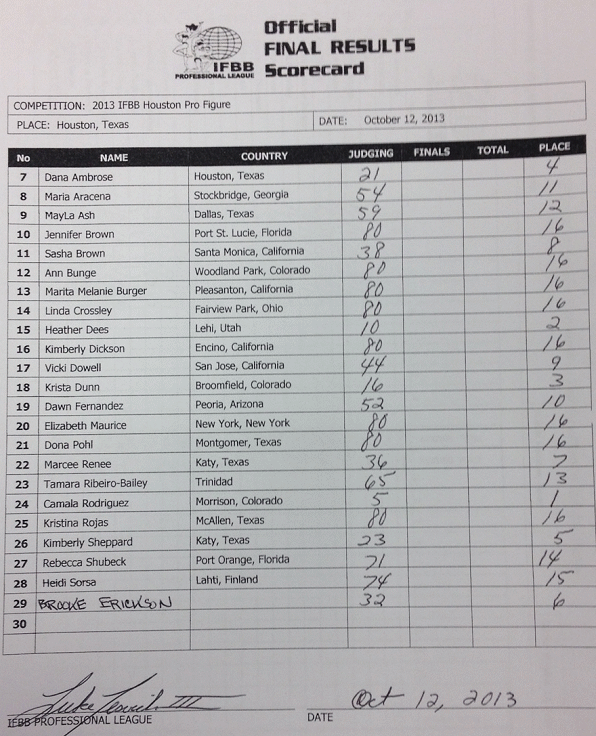 Official
FINAL RESULTS
Scorecard
IFBB
PROFESSIONAL LEAGUE
COMPETITION: 2013 IFBB Houston Pro Figure
PLACE: Houston, Texas DATE: October 12, 2013
No NAME COUNTRY JUDGING FINALS TOTAL PLACE
7 Dana Ambrose Houston, Texas 21 4
8 Maria Aracena Stockbridge, Georgia 54 11
9 MayLa Ash Dallas, Texas 59 12
10 Jennifer Brown Port St. Lucie, Florida 80 16
11 Sasha Brown Santa Monica, California 38 8
12 Ann Bunge Woodland Park, Colorado 80 16
13 Marita Melanie Burger Pleasanton, California 80 16
14 Linda Crossley Fairview Park, Ohio 80 16
15 Heather Dees Lehi, Utah 10 2
16 Kimberly Dickson Encino, California 80 16
17 Vicki Dowell San Jose, California 44 9
18 Krista Dunn Broomfield, Colorado 16 3
19 Dawn Fernandez Peoria, Arizona 52 10
20 Elizabeth Maurice New York, New York 80 16
21 Dona Pohl Montgomer, Texas 80 16
22 Marcee Renee Katy, Texas 36 7
23 Tamara Ribeiro-Bailey Trinidad 65 13
24 Camala Rodriguez Morrison, Colorado 5 1
25 Kristina Rojas McAllen, Texas 80 16
26 Kimberly Sheppard Katy, Texas 23 5
27 Rebecca Shubeck Port Orange, Florida 71 14
28 Heidi Sorsa Lahti, Finland 74 15
29 BROOKE ERICKSON 32 6
30
Oct 12, 2013
IFBB PROFESSIONAL LEAGUE DATE